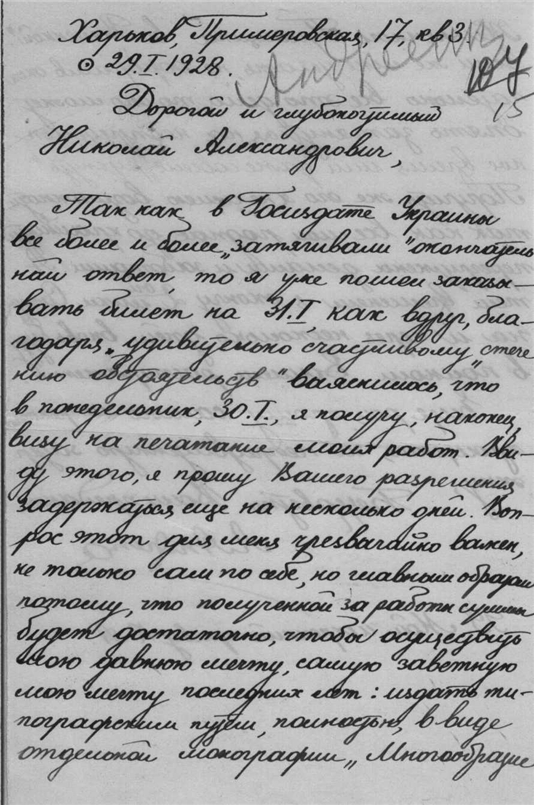 Харьков, Пушкеровская, 17, кв 3.
29.I.1928.
Андреев
107
15
Дорогой и глубокочтимый
Николай Александрович,
Так как в Госиздате Украины
все более и более „затягивали" окончатель
ный ответ, то я уже пошел заказы-
вать билет на 31.I, как вдруг, бла-
годаря „удивительно счастливому стече
нию обстоятельств" выяснилось, что
в понедельник, 30.I., я получу, наконец,
визу на печатание моих работ. Вви-
ду этого, я прошу Вашего разрешения
задержаться еще на несколько дней. Воп-
рос этот для меня чрезвычайно важен,
не только сам по себе, но главным образом
потому, что полученной за работы суммы
будет достаточно, чтобы осуществить
мою давнюю мечту, самую заветную
мою мечту последних лет: издать ти-
пографским путем, полностью, в виде
отдельной монографии „Многообразие